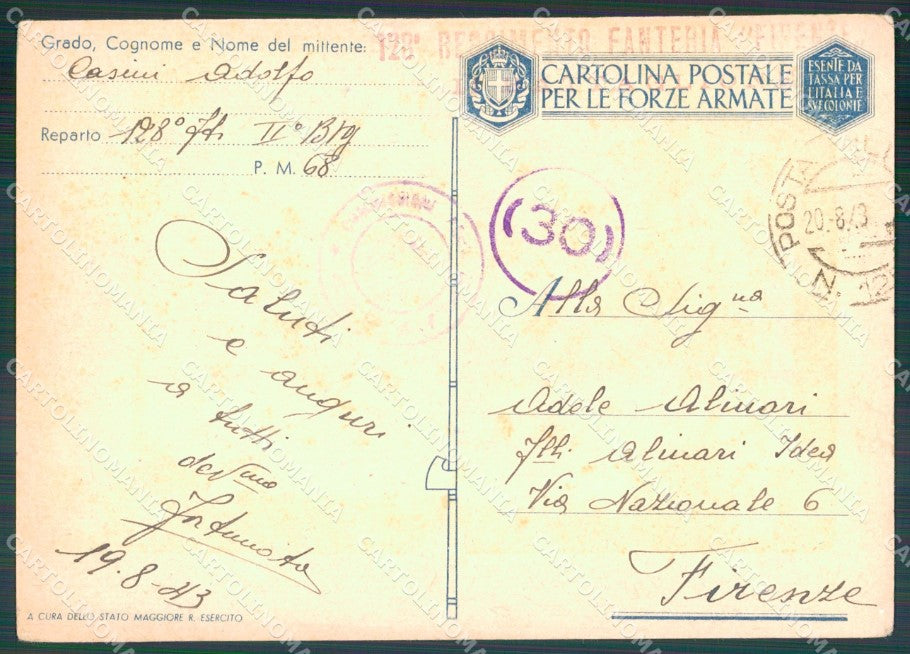 128° REGGIMENTO FANTERIA "FIRENZE"
Grado, Cognome e Nome del mittente:
Casini Adolfo
Reparto 128° fth II° Btg
P. M. 68
CARTOLINA POSTALE
PER LE FORZE ARMATE
ESENTE DA
TASSA PER
L'ITALIA E
SUE COLONIE
POSTA
20-8-43
N. 12
(30)
Saluti
e auguri
a tutti
dev.mo
19.8-43
Alla Sig.na
Adele Alinari
flli Alinari Idea
Via Nazionale 6
Firenze
A CURA DELLO STATO MAGGIORE R. ESERCITO
CARTOLINOMANIA